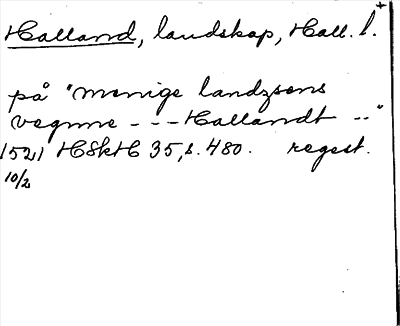 Halland, landskap, Hall. l.+
på "menige landzsens
vegnne - - - Hallandt .."
1521 HSkH 35, s. 480. regest.
10/2